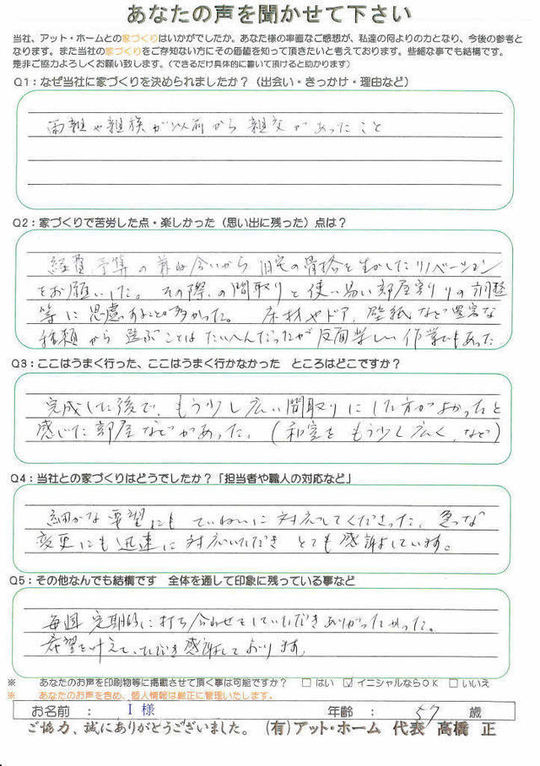 あなたの声を聞かせて下さい
当社、アット・ホームとの家づくりはいかがでしたか。あなた様の率直なご感想が、私達の何よりの力となり、今後の参考と
なります。また当社の家づくりをご存知ない方にその価値を知って頂きたいと考えております。些細な事でも結構です。
是非ご協力よろしくお願い致します。(できるだけ具体的に書いて頂けると助かります)
Q1：なぜ当社に家づくりを決められましたか？（出会い・きっかけ・理由など）
両親や親族が以前から親交があったこと
Q2：家づくりで苦労した点・楽しかった（思い出に残った）点は？
経費、予算の兼ね合いから旧宅の骨格を生かしたリノベーション
をお願いした。その際の間取りと使い易い部屋割りの調整
等に思慮することが多かった。床材やドア、壁紙など豊富な
種類から選ぶことはたいへんだったが反面楽しい作業でもあった
Q3：ここはうまく行った、ここはうまく行かなかった　ところはどこですか？
完成した後で、もう少し広い間取りにした方がよかったと
感じた部屋などがあった。（和室をもう少し広く、など）
Q4：当社との家づくりはどうでしたか？「担当者や職人の対応など」
細かな要望にもていねいに対応してくださった。急な
変更にも迅速に対応いただきとても感謝しています。
Q5：その他なんでも結構です　全体を通して印象に残っている事など
毎週定期的に打ち合わせをしていただきありがたかった。
希望を叶えていただき感謝しております。
※　あなたのお声を印刷物等に掲載させて頂く事は可能ですか？　□ はい　☑ イニシャルならOK　□ いいえ
※　あなたのお声を含め、個人情報は厳正に管理いたします。
お名前　：　I 様　年齢　：　57　歳
ご協力、誠にありがとうございました。(有)アット・ホーム　代表　高橋　正